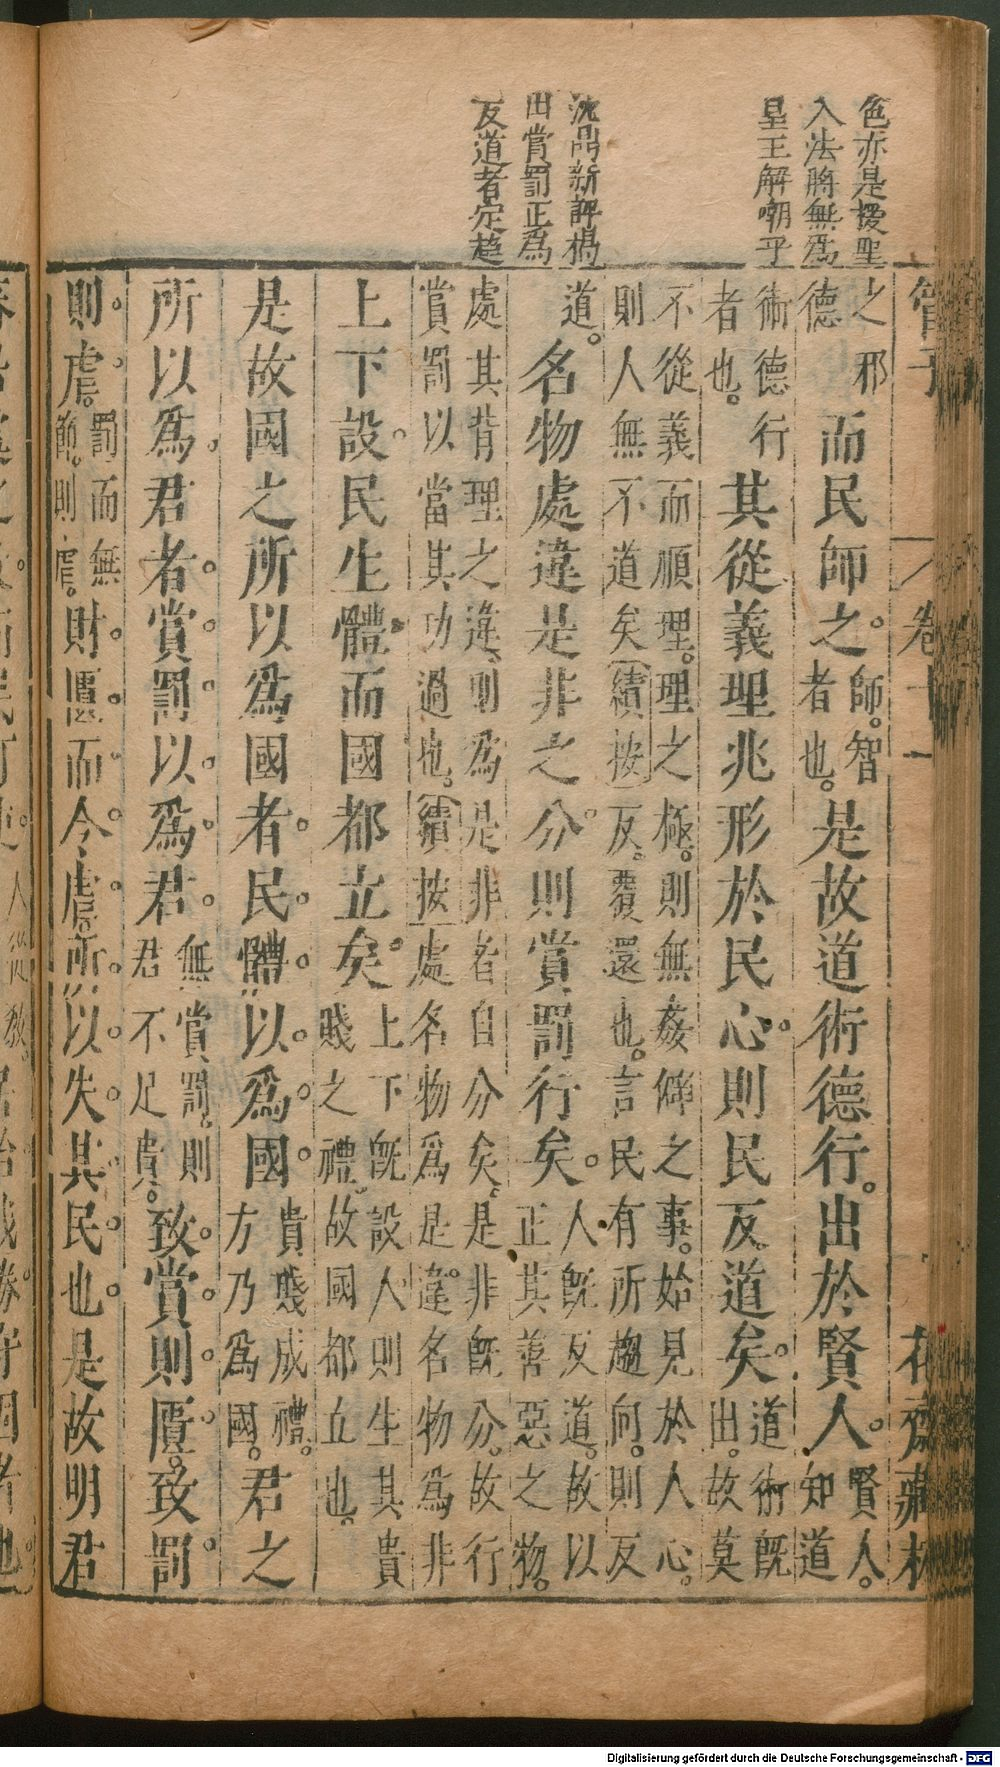 色亦是援聖
入法將無爲
皇王解嘲乎
沈鼎新評揭
出賞罰正爲
反道者定趨
管子 卷十一 花齋藏板
之邪
德
而民師之。
師。智
者也。
是故道術德行。出於賢人。
賢人。
知道
術德行
者也。
其從義理兆形於民心。則民反道矣。
道術既
出。故莫
不從義而順理。理之極。則無姦僻之事。始見於人心。
則人無不道矣績按反。覆還也。言民有所趨向。則反
道。
名物處違是非之分。則賞罰行矣。
人既反道。故以
正其善惡之物。
處其背理之違、則爲是非者自分矣。是非既分。故行
賞罰以當其功過也。績按處名物爲是。違名物爲非
上下設。民生體而國都立矣。
上下既設人則生其貴
賤之禮。故國都立也。
是故國之所以爲國者。民體以爲國。
貴賤成禮。
方乃爲國。
君之
所以爲君者。賞罰以爲君。
無賞罰。則
君不足貴。
致賞則匱。致罰
則虐。
罰而無
節。則虐。
財匱而令虐。所以失其民也。是故明君
Digitalisierung gefördert durch die Deutsche Forschungsgemeinschaft - DFG